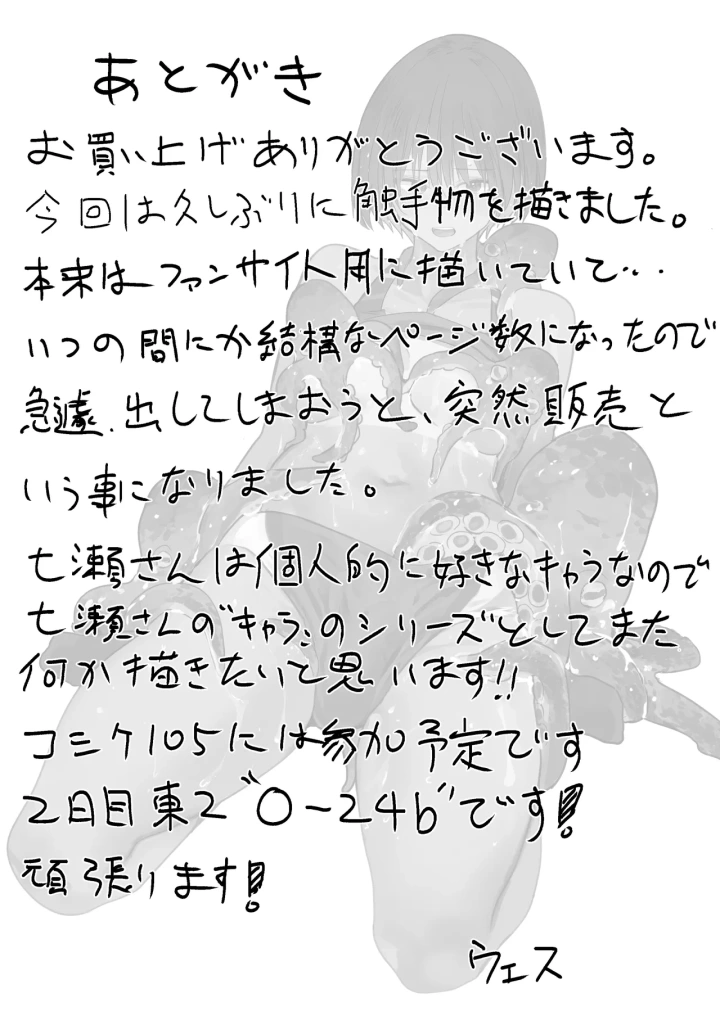 あとがき
お買い上げありがとうございます。
今回は久しぶりに触手物を描きました。
本来はファンサイト用に描いていて・・・
いつの間にか結構なページ数になったので
急遽、出してしまおうと、突然販売と
いう事になりました。
七瀬さんは個人的に好きなキャラなので
七瀬さんの"キャラ"のシリーズとしてまた
何か描きたいと思います!!
コミケ105には参加予定です
2日目東2"O-24b"です!
頑張ります!
ウェス